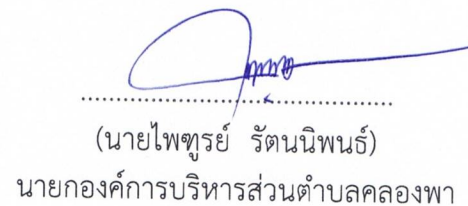 (นายไพฑูรย์ รัตนนิพนธ์)
นายกองค์การบริหารส่วนตำบลคลองพา